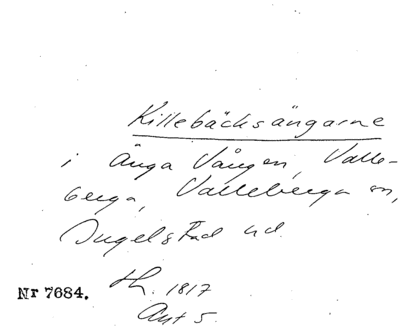 Killebäcksängarne
i Änga Vången, Valle-
berga, Valleberga sn,
Ingelstad hd.
Nr 7684. H. 1817
Akt 5.